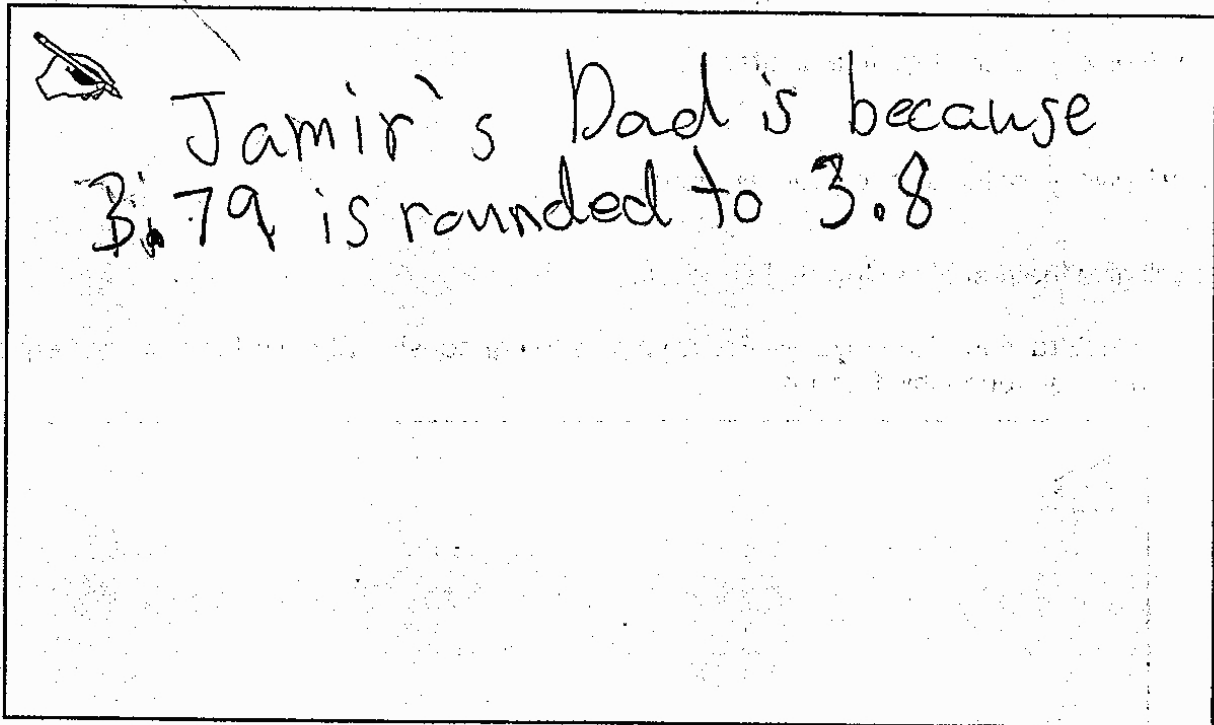 Jamir's Dad is because
3.79 is rounded to 3.8